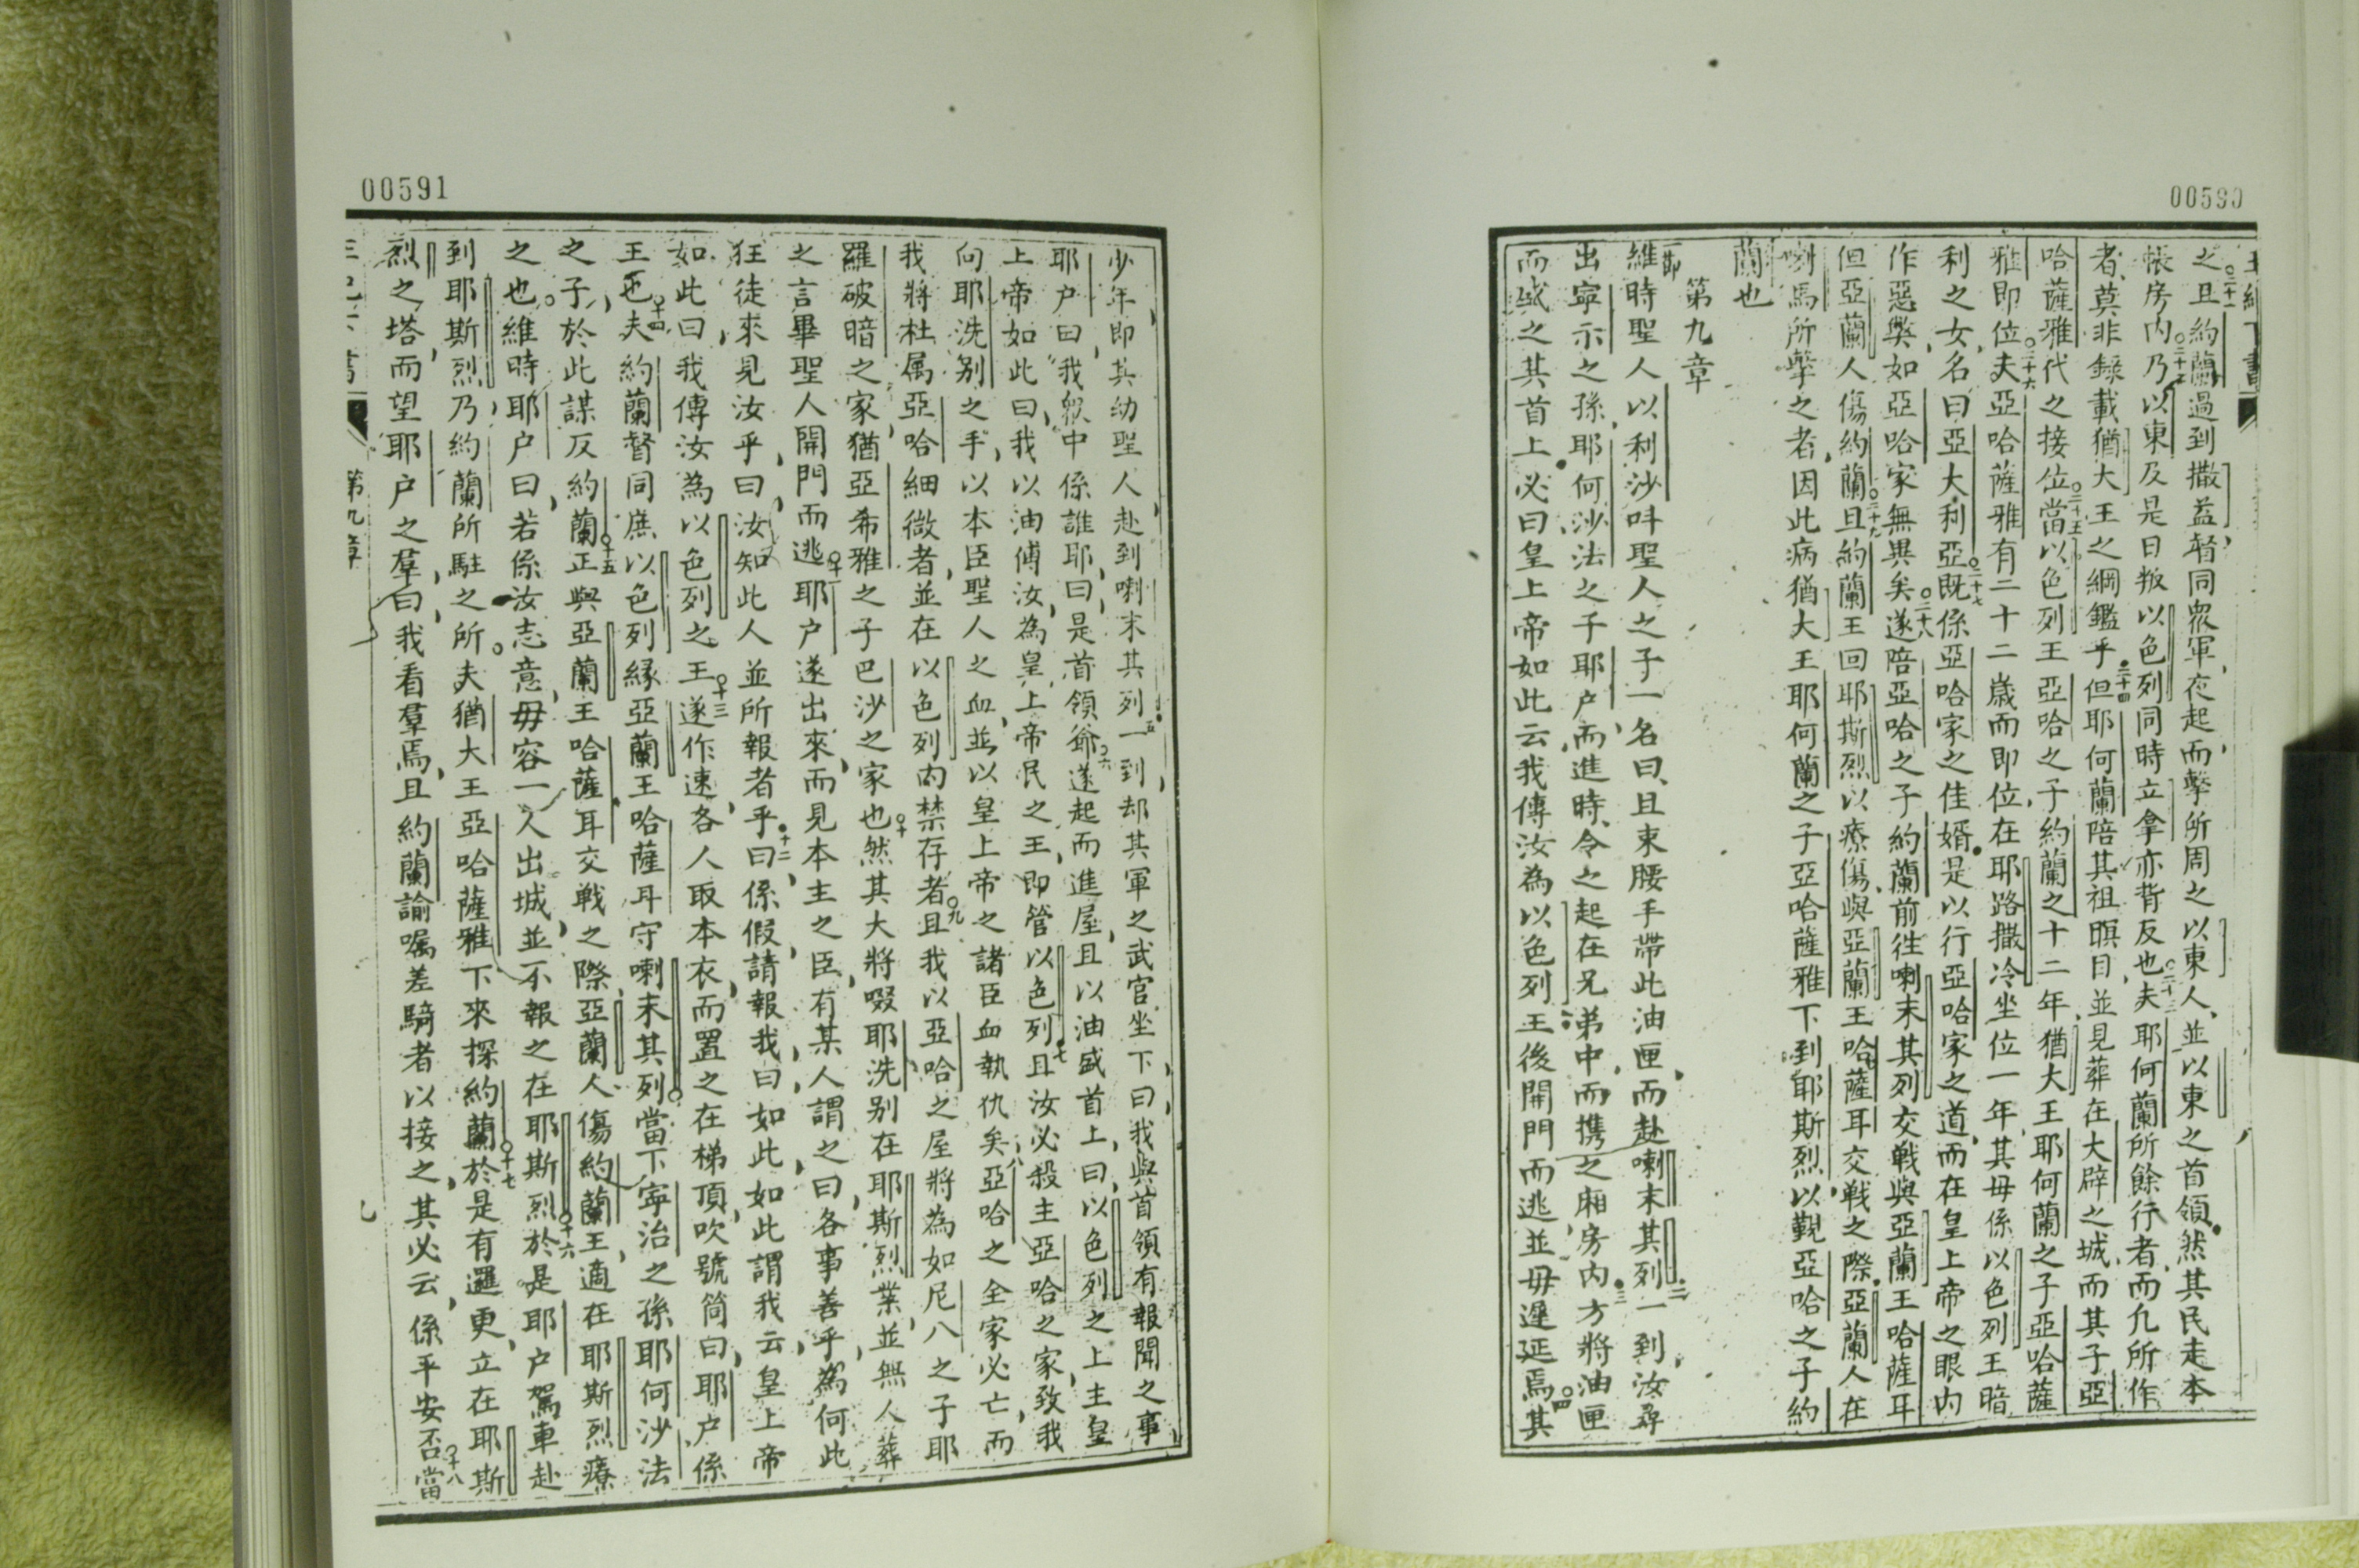 00590
之且約蘭過到撒益督同眾軍夜起而擊所周之以東人並以東之首領然其民走本
帳房内乃以東及是日叛以色列同時立拿亦背反也夫耶何蘭所餘行者而凡所作
者莫非錄載猶大王之綱鑑乎但耶何蘭陪其祖暝目並見葬在大辟之城而其子亞
哈薩雅代之接位當以色列王亞哈之子約蘭之十二年猶大王耶何蘭之子亞哈薩
雅即位夫亞哈薩雅有二十二歲而即位在耶路撒冷坐位一年其毋係以色列王暗
利之女名曰亞大利亞既係亞哈家之佳婿是以行亞哈家之道而在皇上帝之眼内
作惡獘如亞哈家無異矣遂陪亞哈之子約蘭前徃喇末其列交戰與亞蘭王哈薩耳
但亞蘭人傷約蘭且約蘭王回耶斯烈以療傷與亞蘭王哈薩耳交戰之際亞蘭人在
喇馬所擊之者因此病猶大王耶何蘭之子亞哈薩雅下到耶斯烈以觐亞哈之子約
蘭也
第九章
維時聖人以利沙呌聖人之子一名曰且束腰手帶此油匣而赴喇末其列一到汝尋
出寧示之孫耶何沙法之子耶户而進時令之起在兄弟中而携之廂房内方將油匣
而盛之其首上必曰皇上帝如此云我傳汝為以色列王後開門而逃並毋遲延焉其
00591
少年即其幼聖人赴到喇末其列一到却其軍之武官坐下曰我與首領有報聞之事
耶户曰我眾中係誰耶曰是首領爺遂起而進屋且以油盛首上曰以色列之上主皇
上帝如此曰我以油傅汝為皇上帝民之王即管以色列且汝必殺主亞哈之家致我
向耶洗别之手以本臣聖人之血並以皇上帝之諸臣血執仇矣亞哈之全家必亡而
我將杜属亞哈細微者並在以色列内禁存者且我以亞哈之屋將為如尼八之子耶
羅破暗之家猶亞希雅之子巴沙之家也然其大將啜耶洗别在耶斯烈業並無人葬
之言畢聖人開門而逃耶户遂出來而見本主之臣有某人謂之曰各事善乎為何此
狂徒來見汝乎曰汝知此人並所報者乎曰係假請報我曰如此如此謂我云皇上帝
如此曰我傅汝為以色列之王遂作速各人取本衣而置之在梯頂吹號筒曰耶户係
王也夫約蘭督同庶以色列緣亞蘭王哈薩耳守喇末其列當下寧治之孫耶何沙法
之子於此謀反約蘭正與亞蘭王哈薩耳交戰之際亞蘭人傷約蘭王適在耶斯烈療
之也維時耶户曰若係汝志意毋容一人出城並不報之在耶斯烈於是耶户駕車赴
到耶斯烈乃約蘭所駐之所夫猶大王亞哈薩雅下來探約蘭於是有邏更立在耶斯
烈之塔而望耶户之羣曰我看羣焉且約蘭諭囑差騎者以接之其必云係平安否當
第九章
九